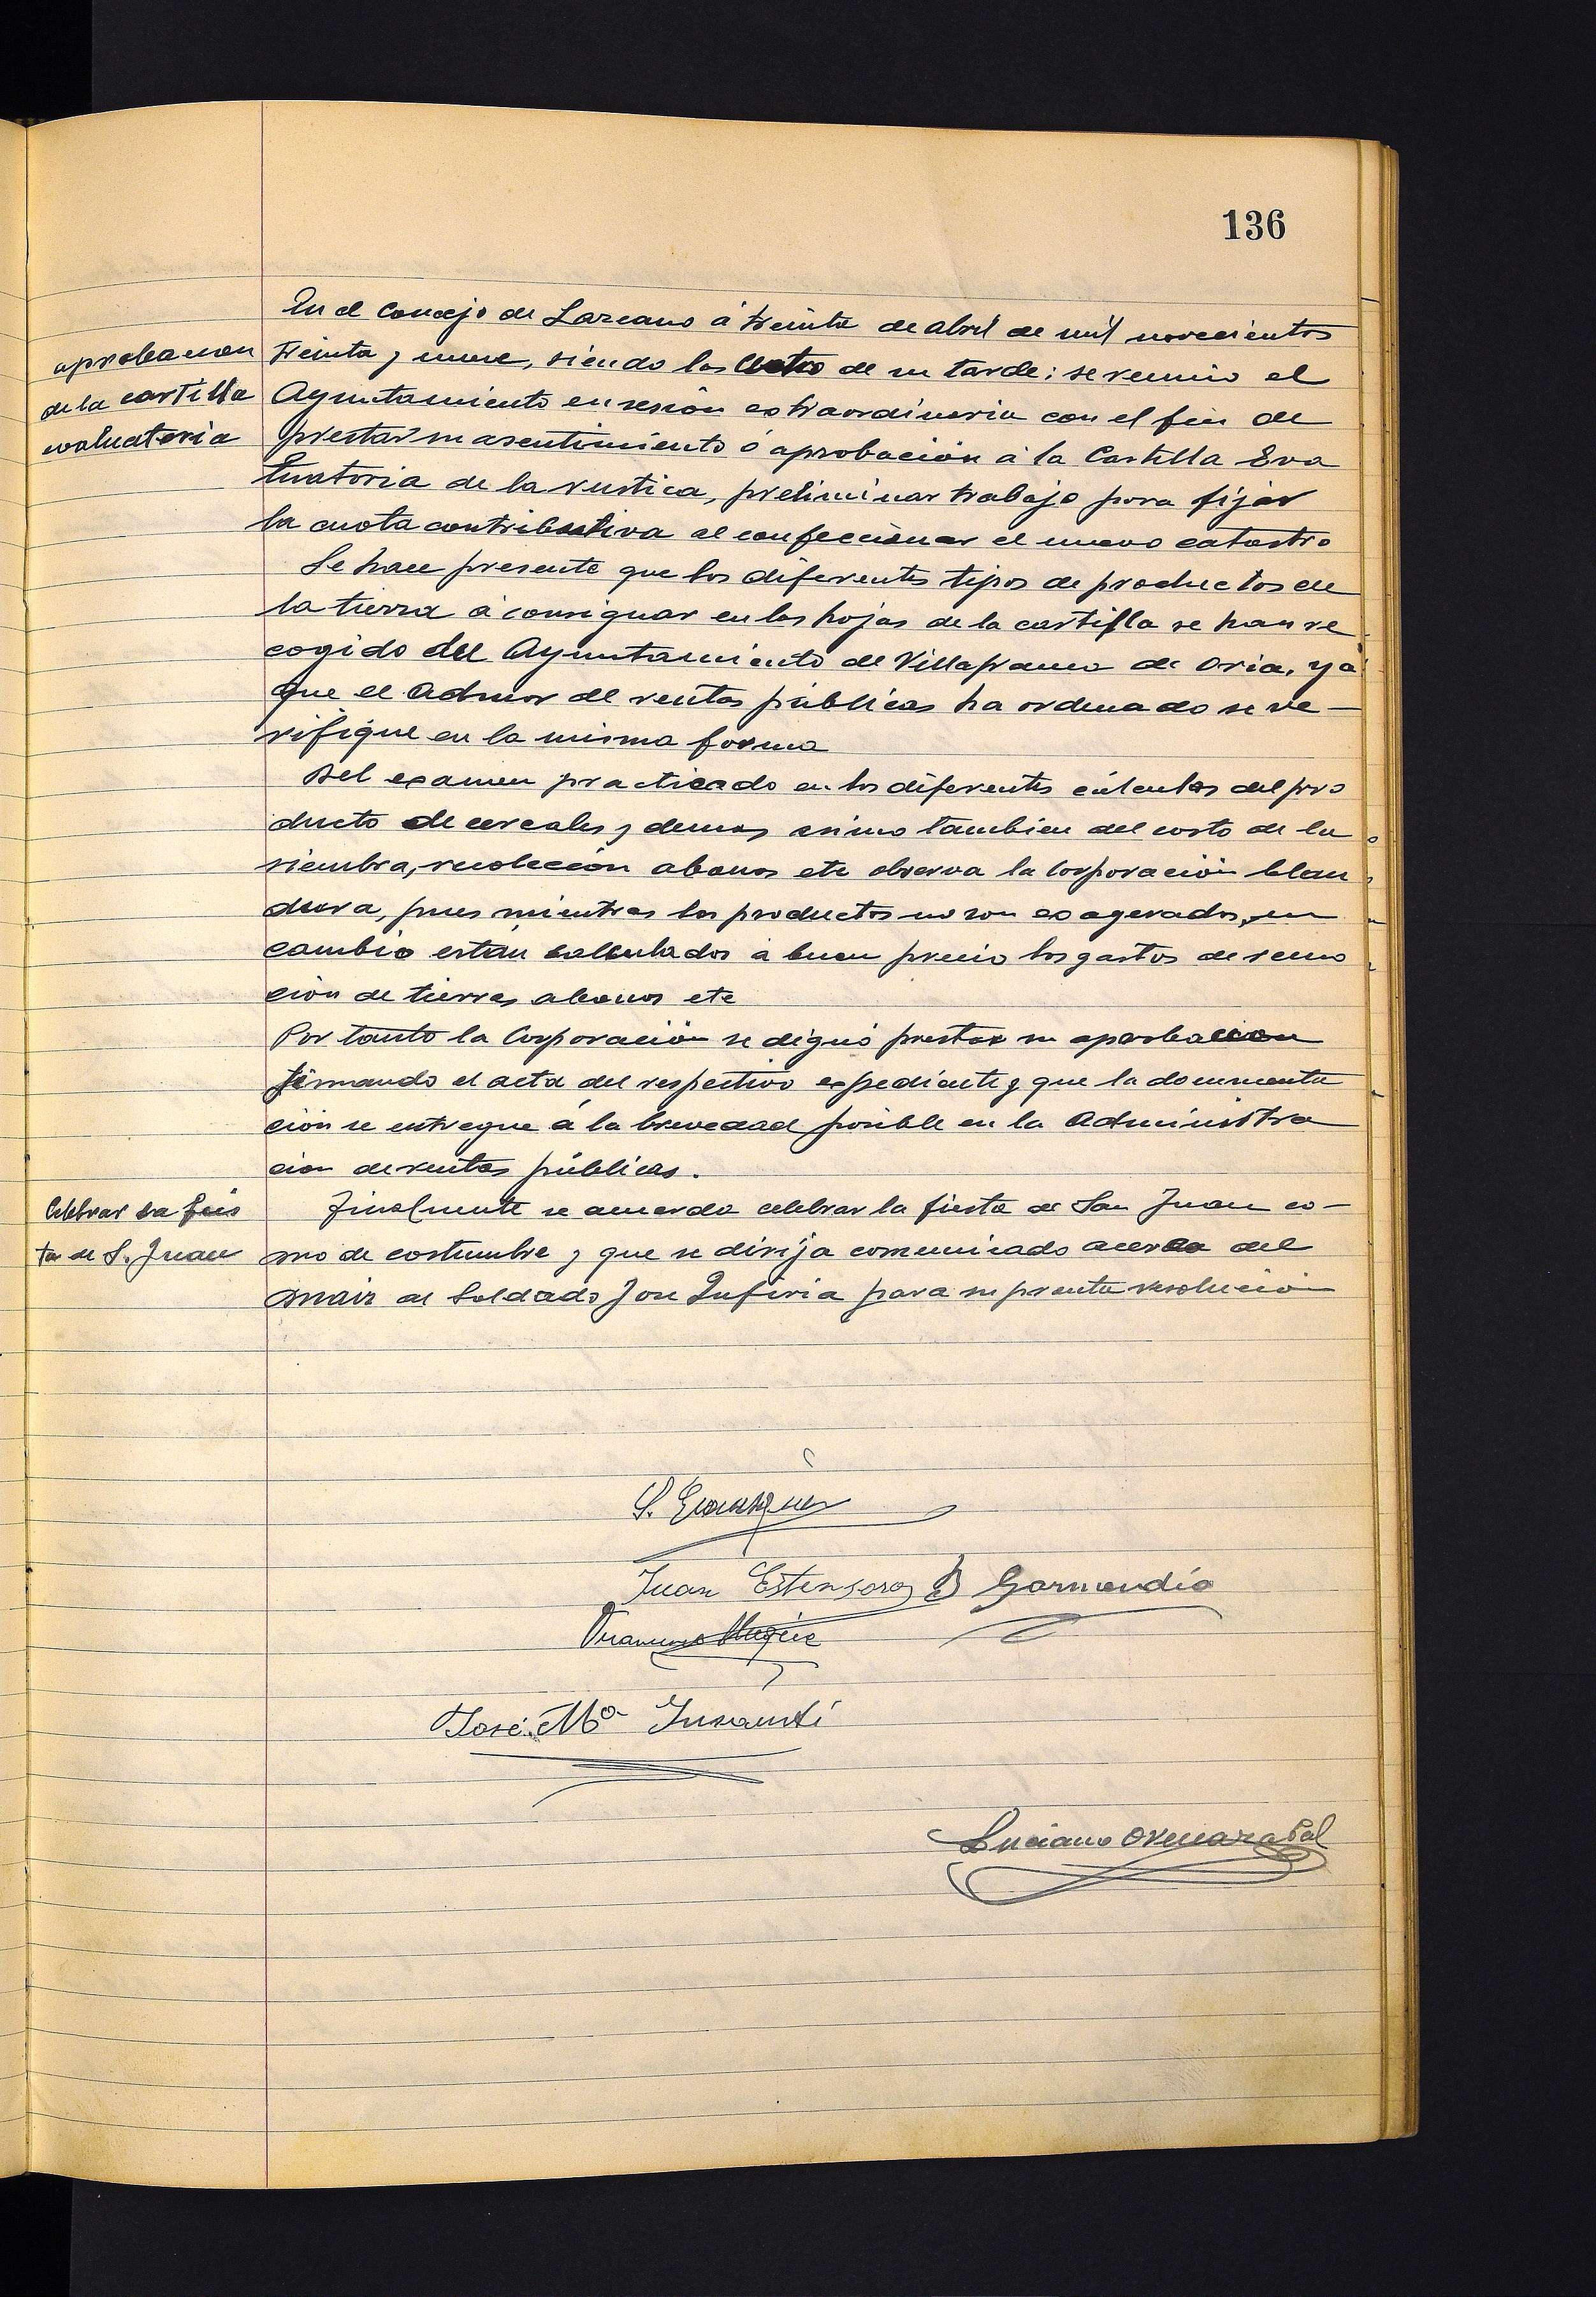 136
En el Concejo de Lazcano á treinta de abril de mil novecientos
aprobacion
de la cartilla
evaluatoria
treinta y nueve, siendo las cuatro de su tarde; se reunio el
Ayuntamiento en sesión extraordinaria con el fin de
prestar su asentimiento ó aprobación á la Cartilla Eva
luatoria de la rustica, preliminar trabajo para fijar
la cuota contributiva al confeccionar el nuevo catastro
Se hace presente que los diferentes tipos de productos de
la tierra á consignar en las hojas de la cartilla se han re
cogido del Ayuntamiento de Villafranca de Oria, ya
que el Admor de rentas públicas ha ordenado se ve-
rifique en la misma forma
Del examen practicado en los diferentes cálculos del pro
ducto de cereales y demas asimo tambien del costo de la
siembra, recolección abonos etc observa la Corporación blan
dura, pues mientras los productos no son exagerados, en
cambio están calculados á buen precio los gastos de remo
ción de tierras abonos etc
Por tanto la Corporación se dignó prestar su aprobacion
firmando el acta del respectivo expediente y que la documenta
ción se entregue á la brevedad posible en la Administra
cion de rentas públicas.
Celebrar la fies
ta de S. Juan
Finalmente se acuerda celebrar la fiesta de San Juan co-
mo de costumbre y que se dirija comunicado acerca del
maiz al Soldado José para su pronta resolución
S.
Juan Estensoro B Garmendia
José Mª
Luciano Ormazabal